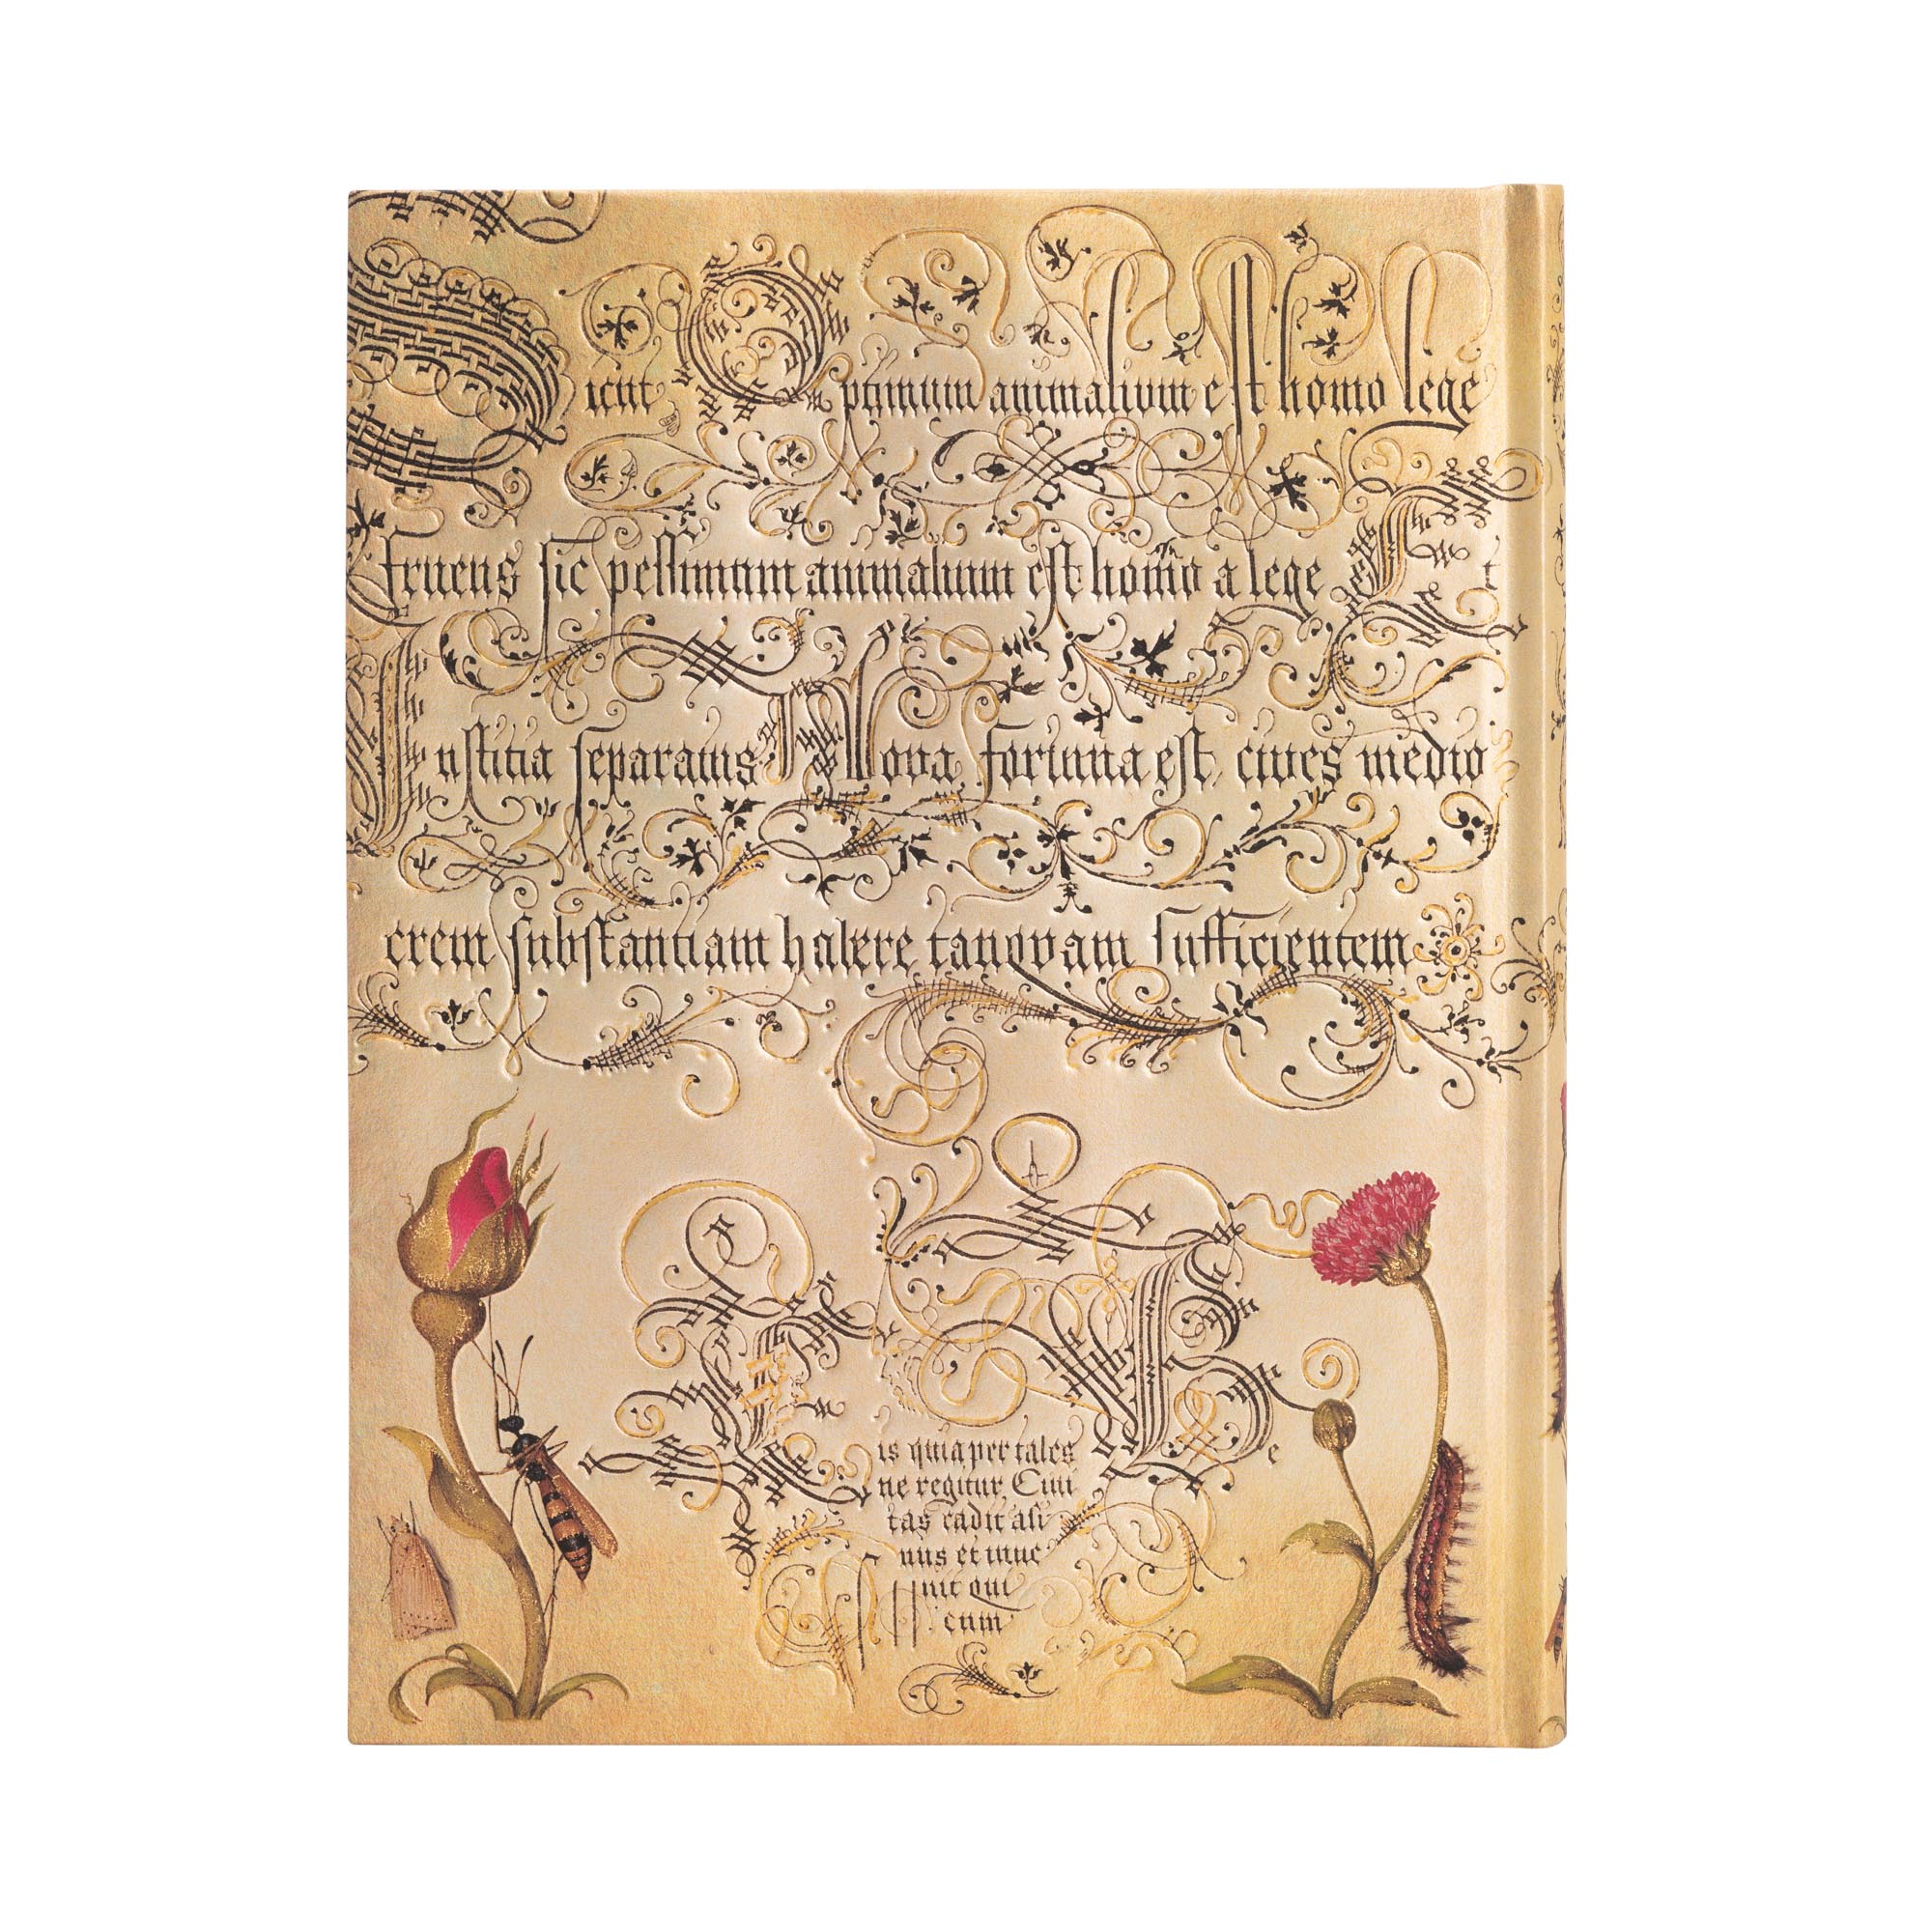 Sicut Optimum animalium est homo lege
fruens sic pessimum animalium est homo a lege Et
Iustitia separatus Nova fortuna est, cives medio
crem substantiam habere tanquam sufficientem
is quia per tales
ne regitur Civi
tas cadit asi
nus et inve
nit qui
eum